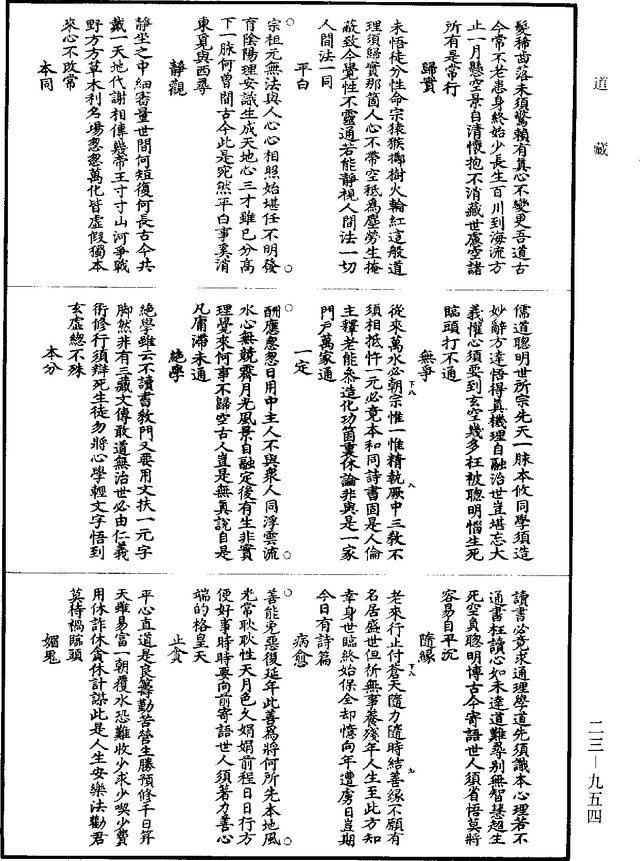 道藏
髮稀齒落未須驚賴有真心不變更吾道古
今常不老患身終始少長生百川到海流方
止一月懸空景自清懷抱不消藏世慮空諸
所有是常行
歸實
未悟徒分性命宗猿猴擲樹火輪紅這般道
理須歸實那箇人心不帶空秪為塵勞生掩
蔽致令覺性不靈通若能靜視人間法一切
人間法一同
平白
宗祖元無法與人心心相照始堪任不明發
育陰陽理安識生成天地心三才雖已分高
下一脉何曾間古今此是宛然平白事奚消
東覓與西尋
靜觀
靜坐之中細審量世間何短復何長古今共
戴一天地代謝相傳幾帝王寸寸山河爭戰
野方方草木利名場怱怱萬化皆虛假獨本
來心不改常
本同
儒道聰明世所宗先天一脉本攸同學須造
妙辭方達悟得真機理自融治世豈堪忘大
義懼心須要到玄空幾多枉被聰明惱生死
臨頭打不通
無爭
從來萬水必朝宗惟一惟精執厥中三教不
須相抵忤一元必竟本和同詩書固是人倫
主釋老能叅造化功箇裏休論非與是一家
門戶萬家通
一定
酬應怱怱日用中主人不與衆人同浮雲流
水心無競霽月光風景自融定後有生非實
理覺來何事不歸空古人豈是無真說自是
凡庸滯未通
絕學
絕學雖云不讀書教門又要用文扶一元字
脚然非有三藏文傳敢道無治世必由仁義
術修行須辯死生徒勿將心學輕文字悟到
玄虛總不殊
本分
讀書必竟求通理學道先須識本心理若不
通書枉讀心如未達道難尋別無智慧超生
死空負聰明博古今寄語世人須省悟莫將
容易自平沉
隨緣
老來行止付蒼天隨力隨時結善緣不願有
名居盛世但祈無事養殘年人生至此方知
幸身世臨終始保全却憶向年遭虜日豈期
今日有詩篇
病愈
善能免惡復延年此善為將何所先本地風
光常耿耿性天月色久娟娟前程日日行方
便好事時時要向前寄語世人須著力善心
端的格皇天
止貪
平心直道是良籌勤苦營生勝預修千日昇
天雖易富一朝覆水恐難收少求少喫少費
用休詐休貪休計謀此是人生安樂法勸君
莫待禍臨頭
媚鬼
二三—九五四